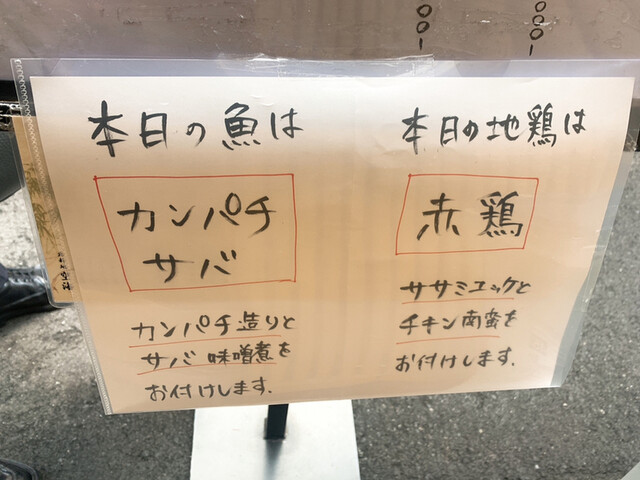 000-
000-
本日の魚は
カンパチ
サバ
カンパチ造りと
サバ味噌煮を
お付けします.
本日の地鶏は
赤鶏
ササミユッケと
チキン南蛮を
お付けします.